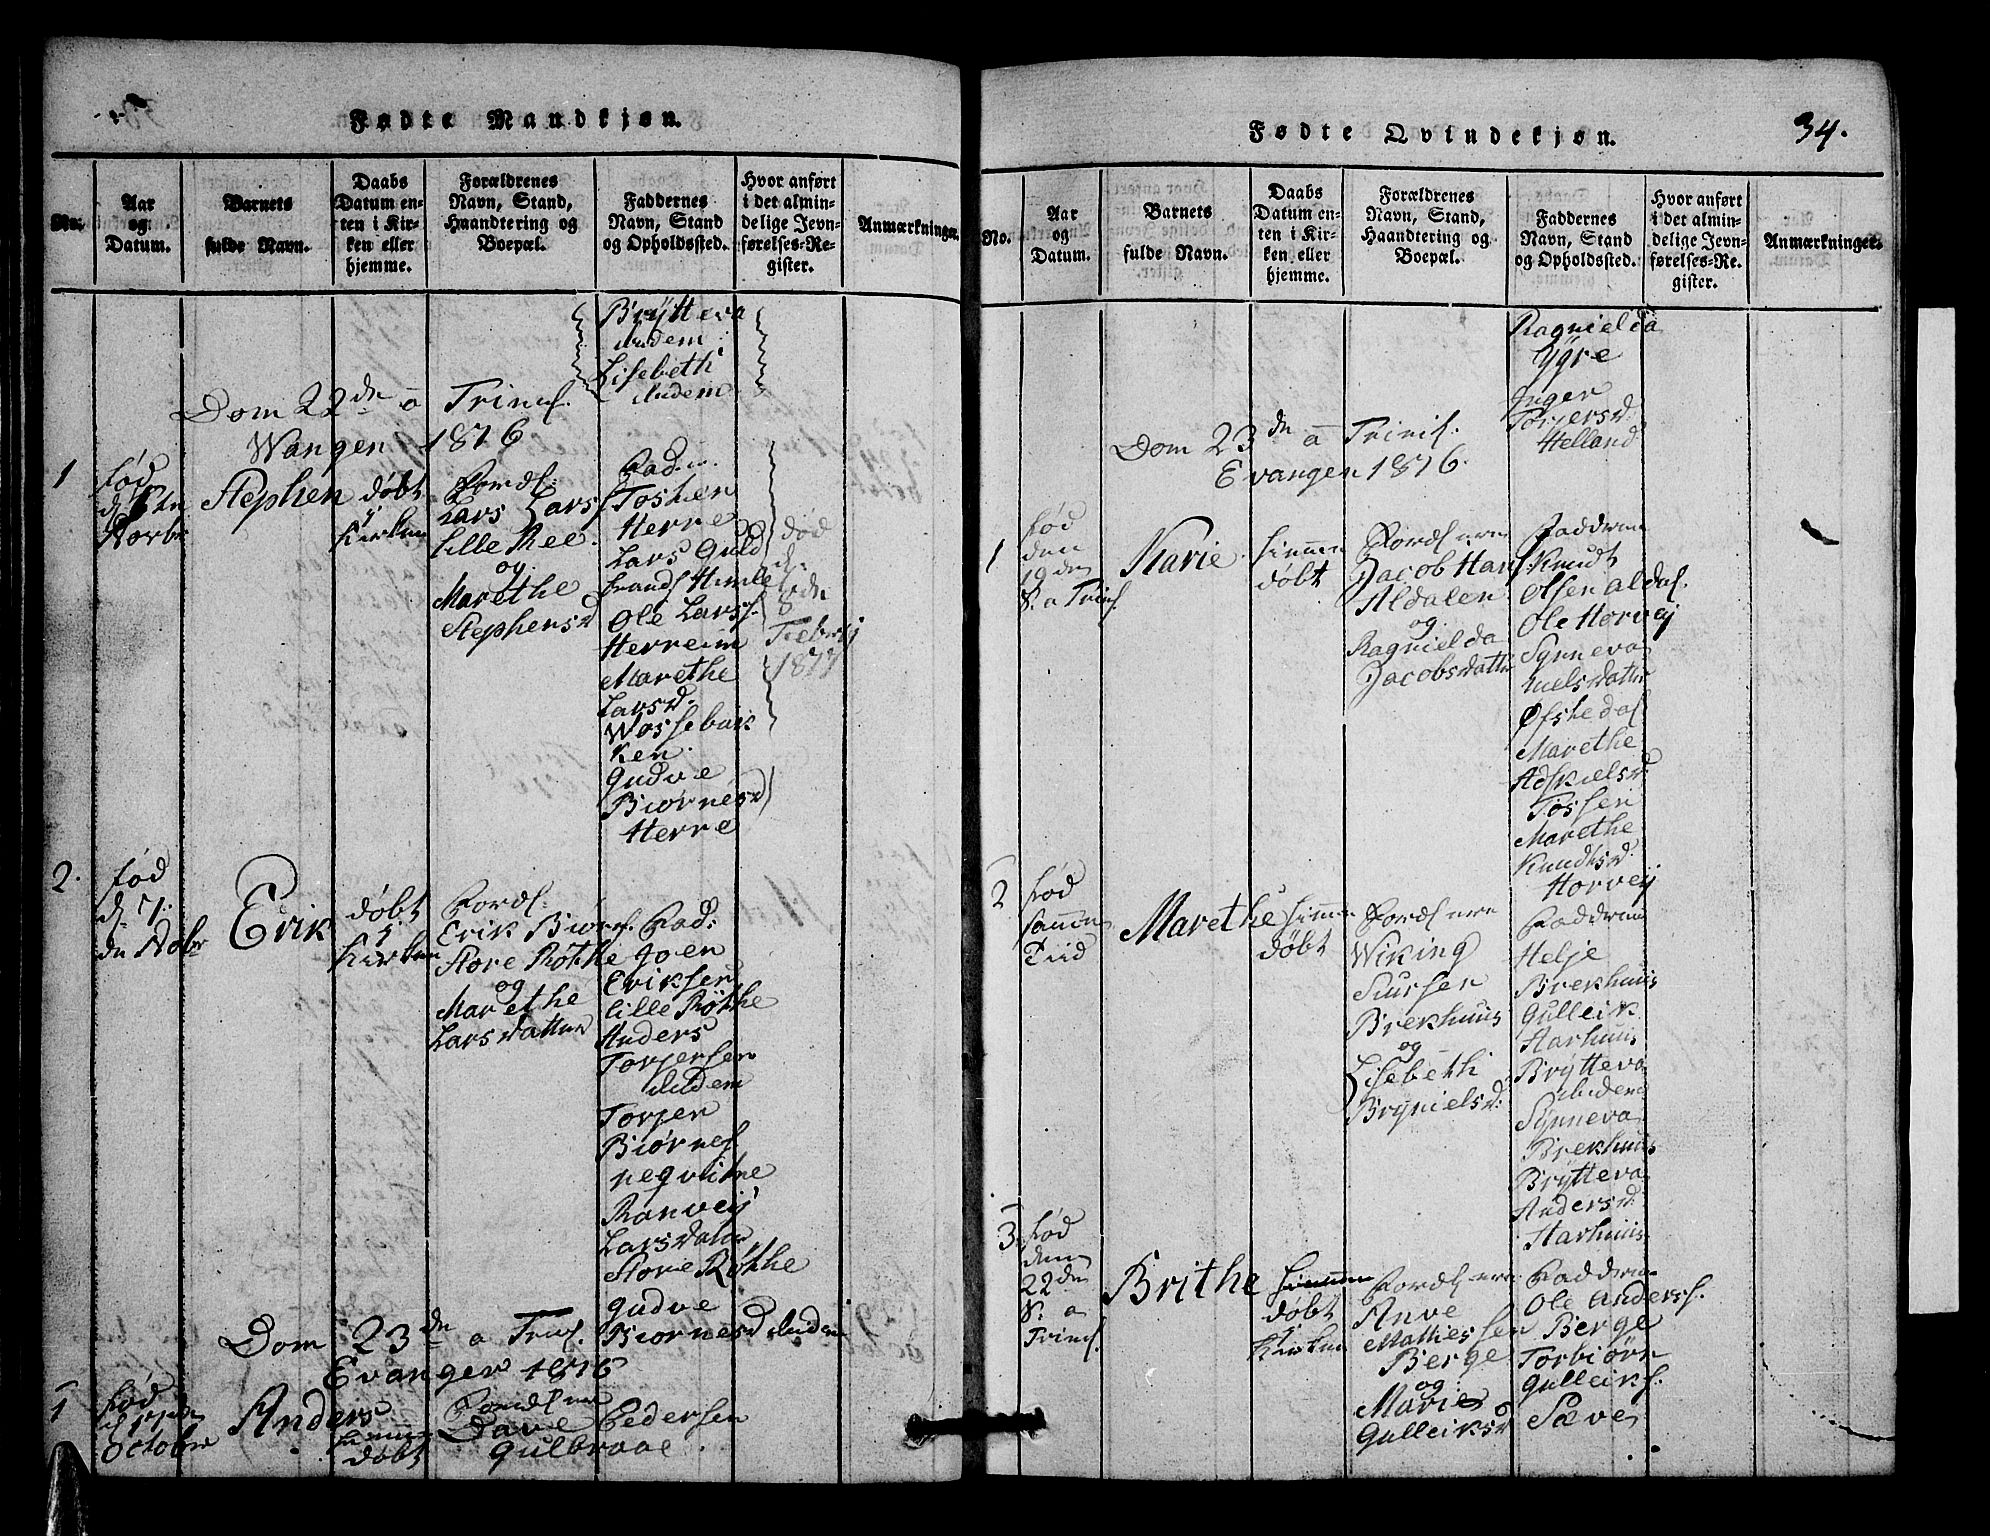 Fødte Mandkjøn.
No.
Aar
og
Datum.
Barnets
fulde Navn.
Daabs
Datum en-
ten i Kir-
ken eller
hjemme.
Forældrenes
Navn, Stand,
Haandtering og
Boepæl.
Faddernes
Navn, Stand
og Opholdssted.
Hvor anført
i det almin-
delige Jevn-
førelses-Re-
gister.
Anmærkninger.
Brytteva
Lisebeth
Dom 22 dn a Trinit.
Wangen 1816
1
fød
Novbr
Stephen
døbt
i
Kirken
Foreld:
Lars Larss
Lille Ree.
og
Marethe
Stephensd
Fad.
Toshen
Herre
Lars Guld
brands Himle
Ole Larss.
Herreim
Marethe
Larsd.
Wossebak
ken.
Gudve
Biørnesd
Herre
død
d.
8de
Februarj
1817
2.
fød
d 7.
Erik
døbt
i
Kirken
Erik Biørns.
Store Røthe
og
Marethe
Larsdatter
Fad:
Joen
Eriksen
Lille Røthe
Anders
Torjersen
Torjer
Biørnes.
Ranveij
Larsdatter
Store Røthe
Gudve
Biørnesd
Dom 23 dn a Trinit.
Evanger 1816
1
fød
October
Anders
døbt
Dave Pedersen
Gulbraae.
Fødte Qvindekjøn.
34.
No.
Aar
og
Datum.
Barnets
fulde Navn.
Daabs
Datum en-
ten i Kir-
ken eller
hjemme.
Forældrenes
Navn, Stand,
Haandtering og
Boepæl.
Faddernes
Navn, Stand
og Opholdssted.
Hvor anført
i det almin-
delige Jevn-
førelses-Re-
gister.
Anmærkninger.
Ragnielda
Ygre
Inger
Torjersd
Helland
Dom 23 dn a Trinit.
Evangen 1816.
1
fød
den
19 dn
S. a Trinit.
Marie
døbt
Jacob Hans.
Aldalen
og
Ragnielda
Jacobsdatter
Knudt
Olsen Aldal.
Ole Horveij
Synneva
Nielsdatter
Marethe
Adskielsd.
Tøssen
Marethe
Knudtsd.
Horveij
2
fød
samme
Tiid
Marethe
døbt
Wiking
Siursen
Brekhuus
og
Lisebeth
Brynielsd:
Helje
Brekhuus
Gulleik
Aarhuus
Brytteva
Synneva
Brekhuus
Brytteva
Andersd
Aarhuus
3.
fød
den
22 dn
S. a
Trinit.
Brithe
døbt
i
Kirken
Anve
Mathiessen
Berge
og
Marie
Gulleiksd
Ole Anderss.
Berge
Torbiørn
Gulleiks.
Sæve